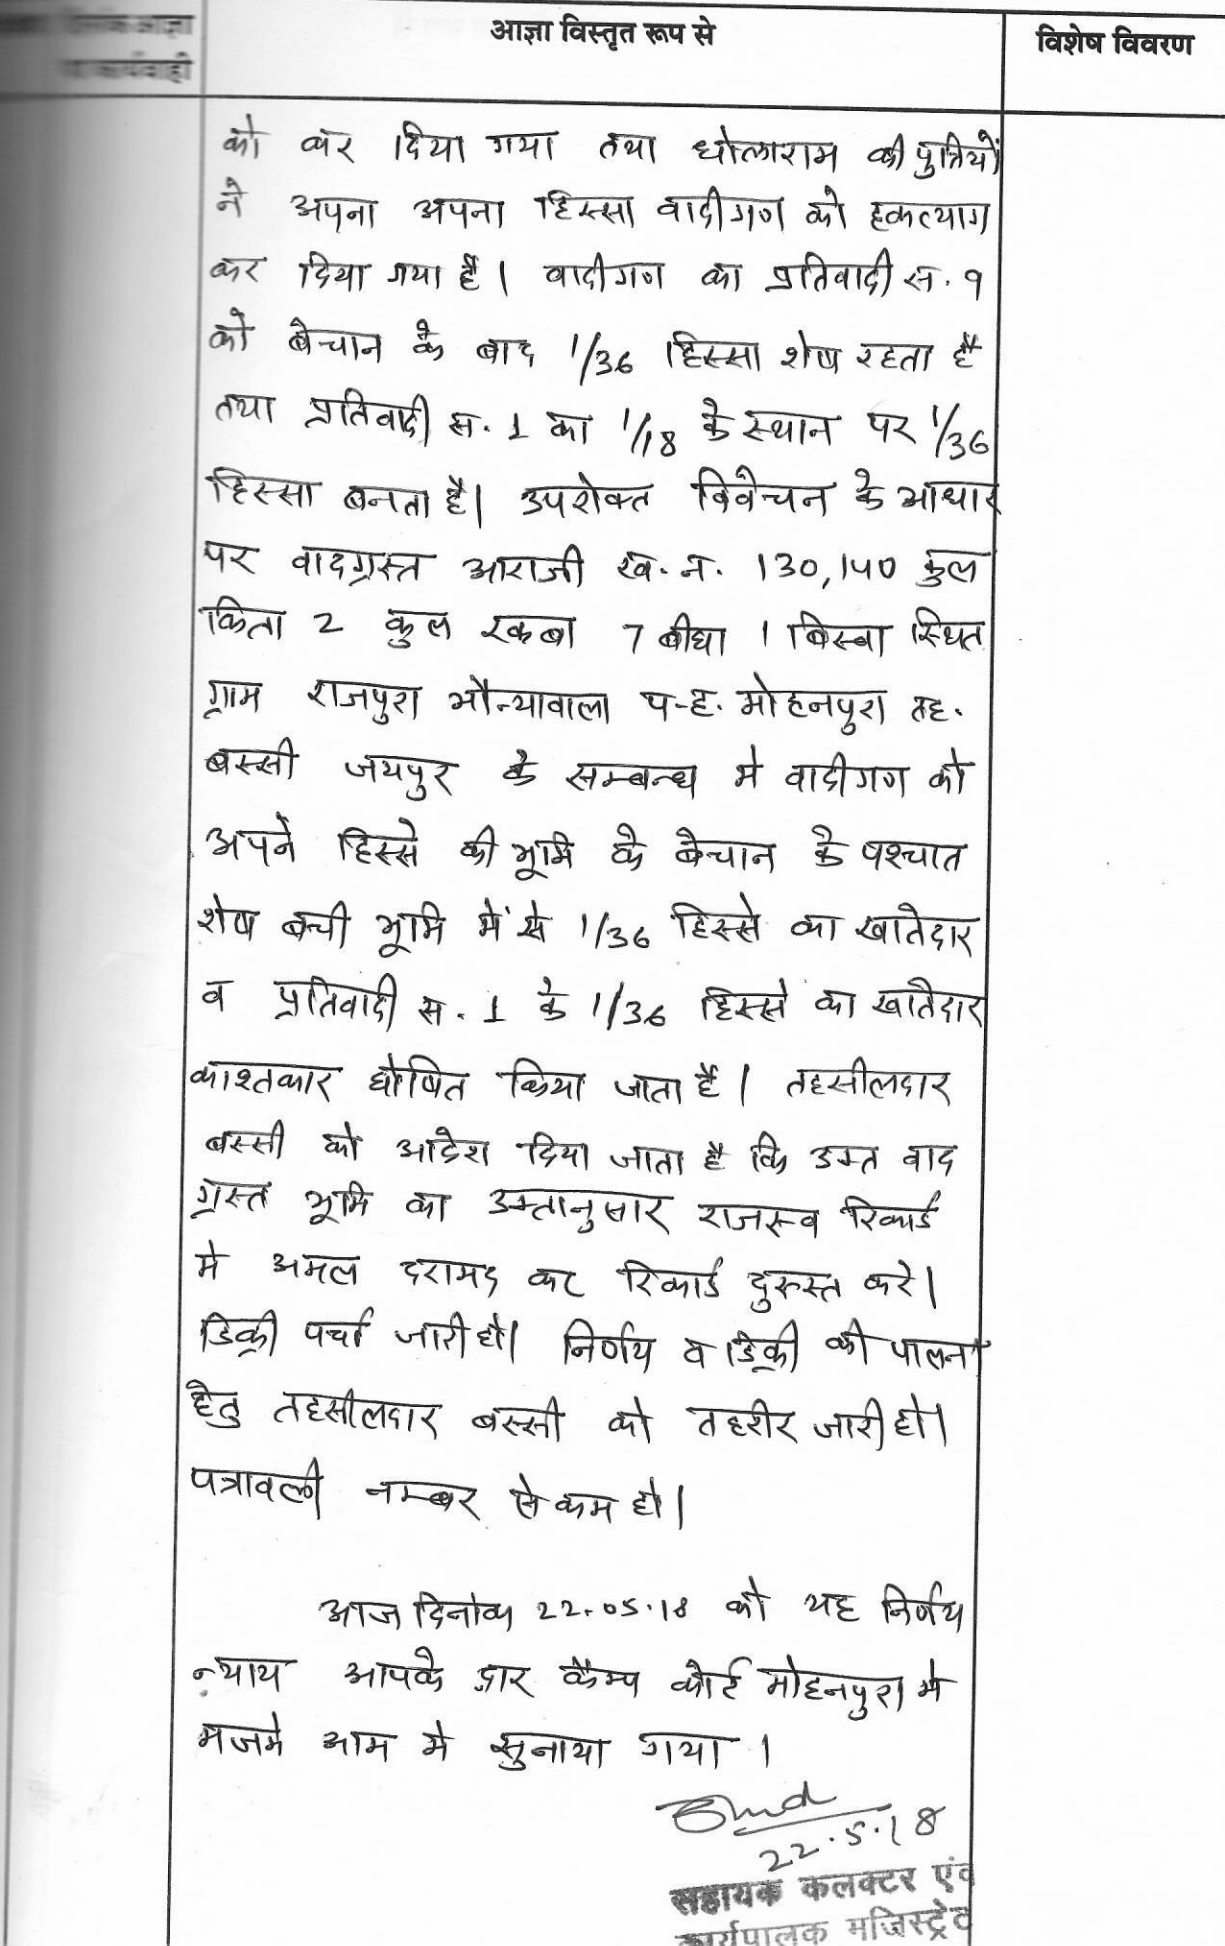 आज्ञा विस्तृत रूप से
विशेष विवरण
को कर दिया गया तथा धोलाराम की पुत्रियों
ने अपना अपना हिस्सा वादीगण को हकत्याग
कर दिया गया है। वादीगण का प्रतिवादी स. १
को बेचान के बाद 1/36 हिस्सा शेष रहता है
तथा प्रतिवादी स. 1 का 1/18 के स्थान पर 1/36
हिस्सा बनता है। उपरोक्त विवेचन के आधार
पर वादग्रस्त आराजी ख. न. 130,140 कुल
किता 2 कुल रकबा 7 बीघा 1 बिस्वा स्थित
ग्राम राजपुरा भौन्यावाला प-ह. मोहनपुरा तह.
बस्सी जयपुर के सम्बन्ध मे वादीगण को
अपने हिस्से की भूमि के बेचान के पश्चात
शेष बची भूमि में से 1/36 हिस्से का खातेदार
व प्रतिवादी स. 1 के 1/36 हिस्से का खातेदार
काश्तकार घोषित किया जाता है। तहसीलदार
बस्सी को आदेश दिया जाता है कि उक्त वाद
ग्रस्त भूमि का उक्तानुसार राजस्व रिकार्ड
मे अमल दरामद कर रिकार्ड दुरुस्त करे।
डिक्री पर्चा जारी हो। निर्णय व डिक्री की पालना
हेतु तहसीलदार बस्सी को तहरीर जारी हो।
पत्रावली नम्बर से कम हो।
आज दिनांक 22.05.18 को यह निर्णय
न्याय आपके द्वार कैम्प कोर्ट मोहनपुरा मे
मजमे आम मे सुनाया गया।
22.5.18
सहायक कलक्टर एवं
कार्यपालक मजिस्ट्रेट